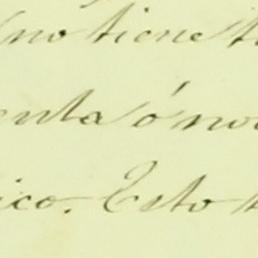 no tiene
enta ó no
ico. Esto